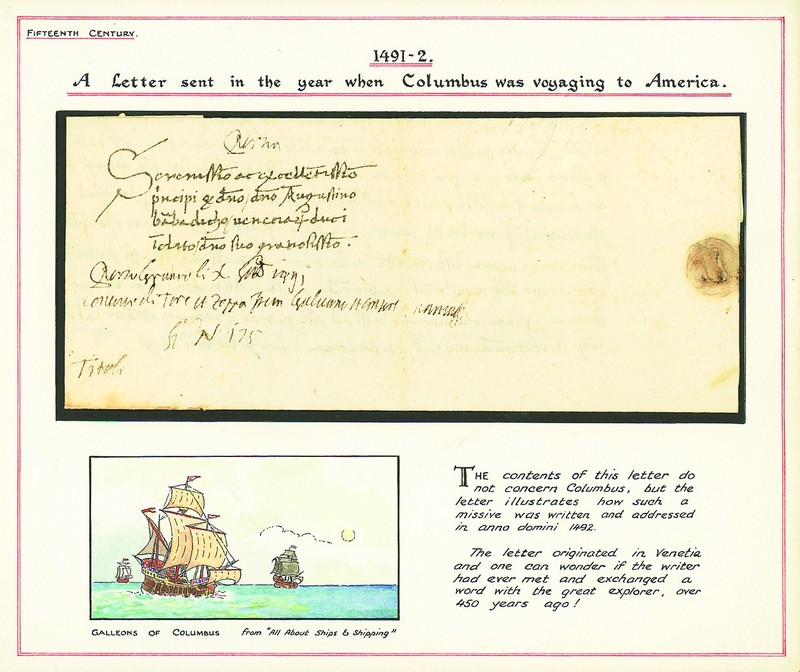 FIFTEENTH CENTURY.
1491-2.
A Letter sent in the year when Columbus was voyaging to America.
Serenissimo ac excellentissimo
principi et dno, dno Augustino
duci
suo
No 175
Titoli
THE contents of this letter do
not concern Columbus, but the
letter illustrates how such a
missive was written and addressed
in anno domini 1492.
The letter originated in Venetia
and one can wonder if the writer
had ever met and exchanged a
word with the great explorer, over
450 years ago!
GALLEONS OF COLUMBUS from "All About Ships & Shipping"